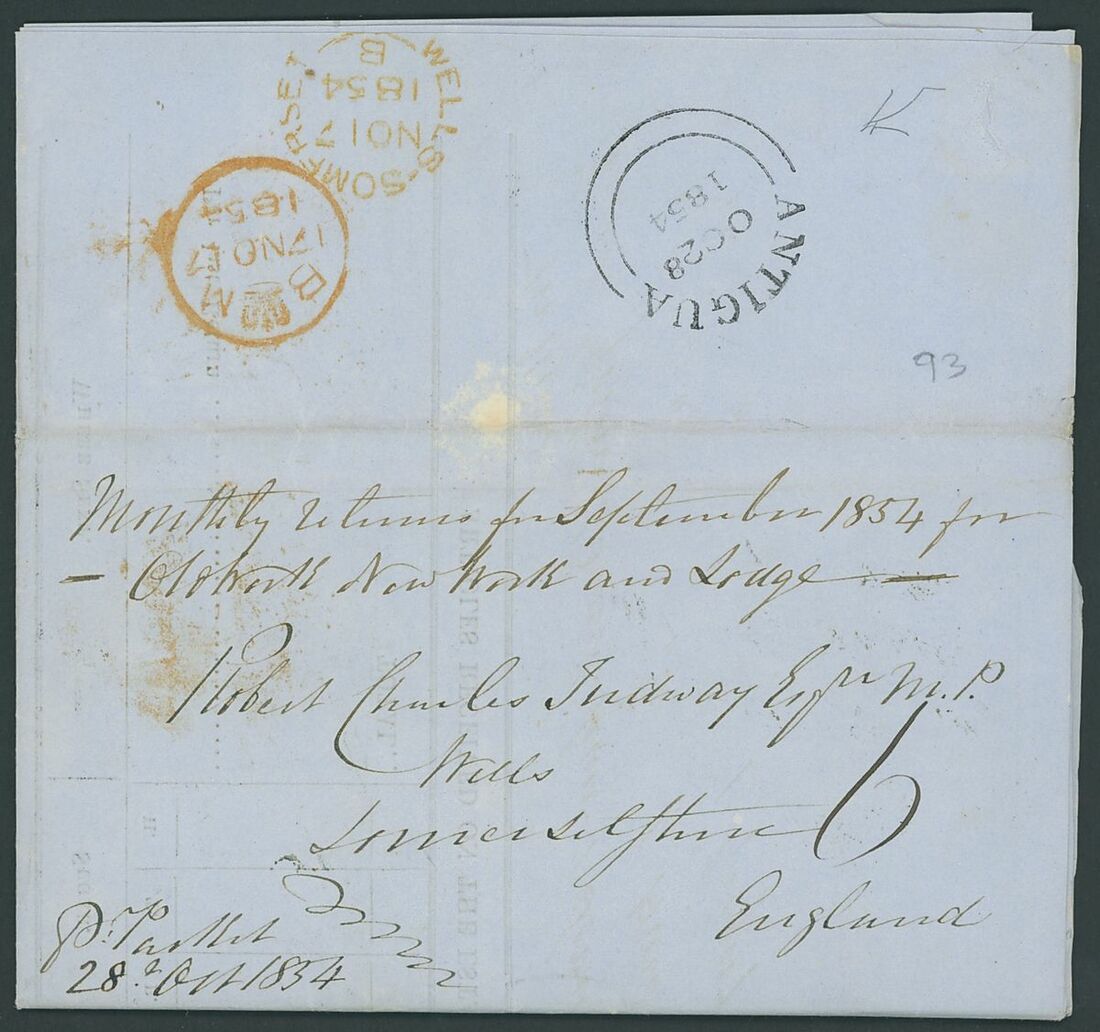 WELLS-SOMERSET
B
1854
NO17
BM
17NO17
1854
ANTIGUA
OC28
1854
93
Monthly returns for September 1854 for
— Oldwork New Work and Lodge —
Robert Charles Tudway Esqre M.P.
Wells
Somersetshire
6
England
Pr. Packet
28th Oct 1854